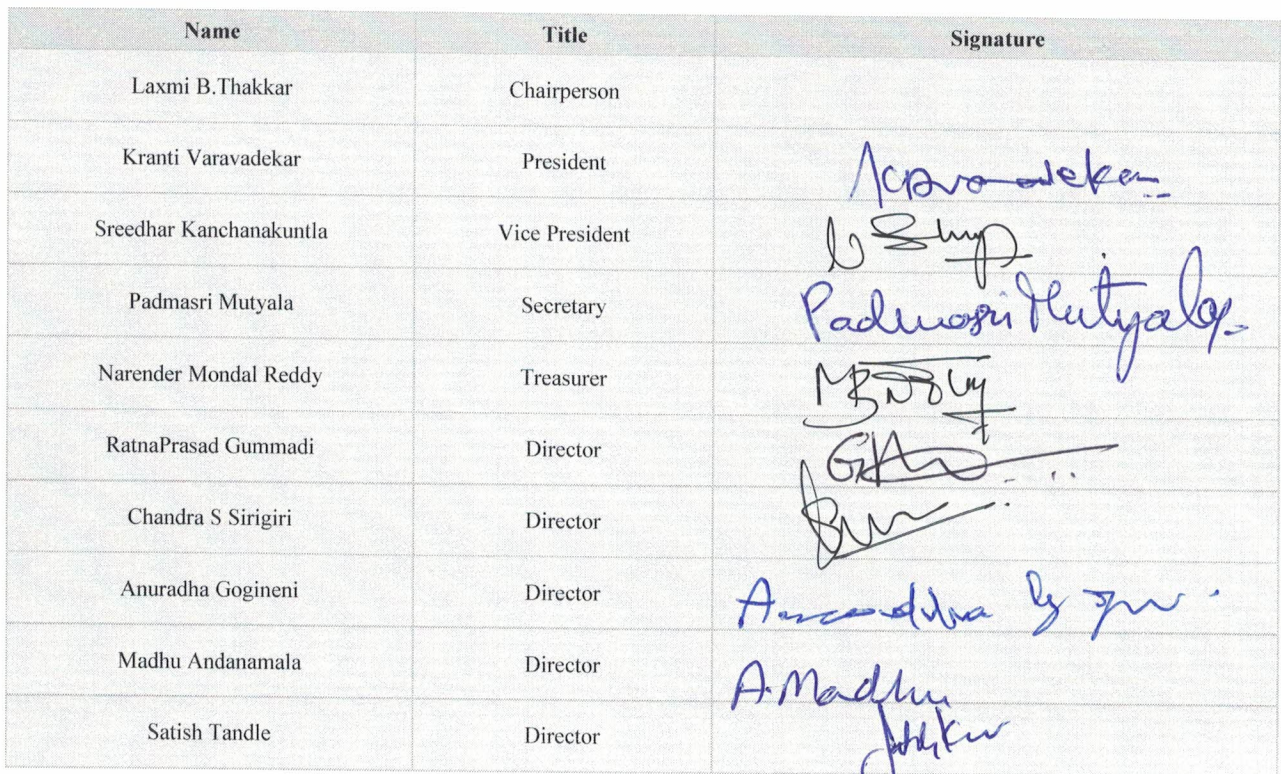 Name Title Signature
Laxmi B.Thakkar Chairperson
Kranti Varavadekar President
Sreedhar Kanchanakuntla Vice President
Padmasri Mutyala Secretary Padmasri Mutyala
Narender Mondal Reddy Treasurer
RatnaPrasad Gummadi Director
Chandra S Sirigiri Director
Anuradha Gogineni Director Anuradha
Madhu Andanamala Director A.Madhu
Satish Tandle Director